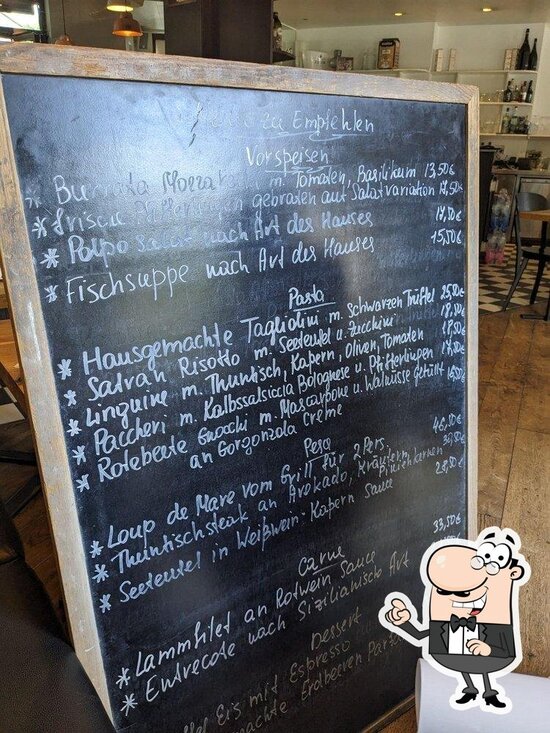 zu Empfehlen
Vorspeisen
* Burrata Mozzarella m. Tomaten, Basilikum 13,50€
* frische Pfifferlingen gebraten auf Salatvariation
* Polpo Salat nach Art des Hauses
* Fischsuppe nach Art des Hauses 15,50€
Pasta
* Hausgemachte Tagliolini m. schwarzen Trüffel 25,50€
* Safran Risotto m. Seeteufel u. zucchini 18,50€
* Linguine m. Thunfisch, Kapern, Oliven, Tomaten
* Paccheri m. Kalbssalsiccia Bolognese u. Pfifferlingen
* Rotebeete Gnocchi m. Mascarpone u. Walnüsse gefüllt
an Gorgonzola Creme
Pesce
* Loup de Mare vom Grill für 2 Pers. 46,50€
* Thunfischsteak an Avokado, Kräutern, Pinienkernen
* Seeteufel in Weißwein-Kapern Sauce
Carne
* Lammfilet an Rotwein Sauce 33,50€
* Entrecote nach Sizilianische Art
Dessert
Eis mit Espresso
Erdbeeren